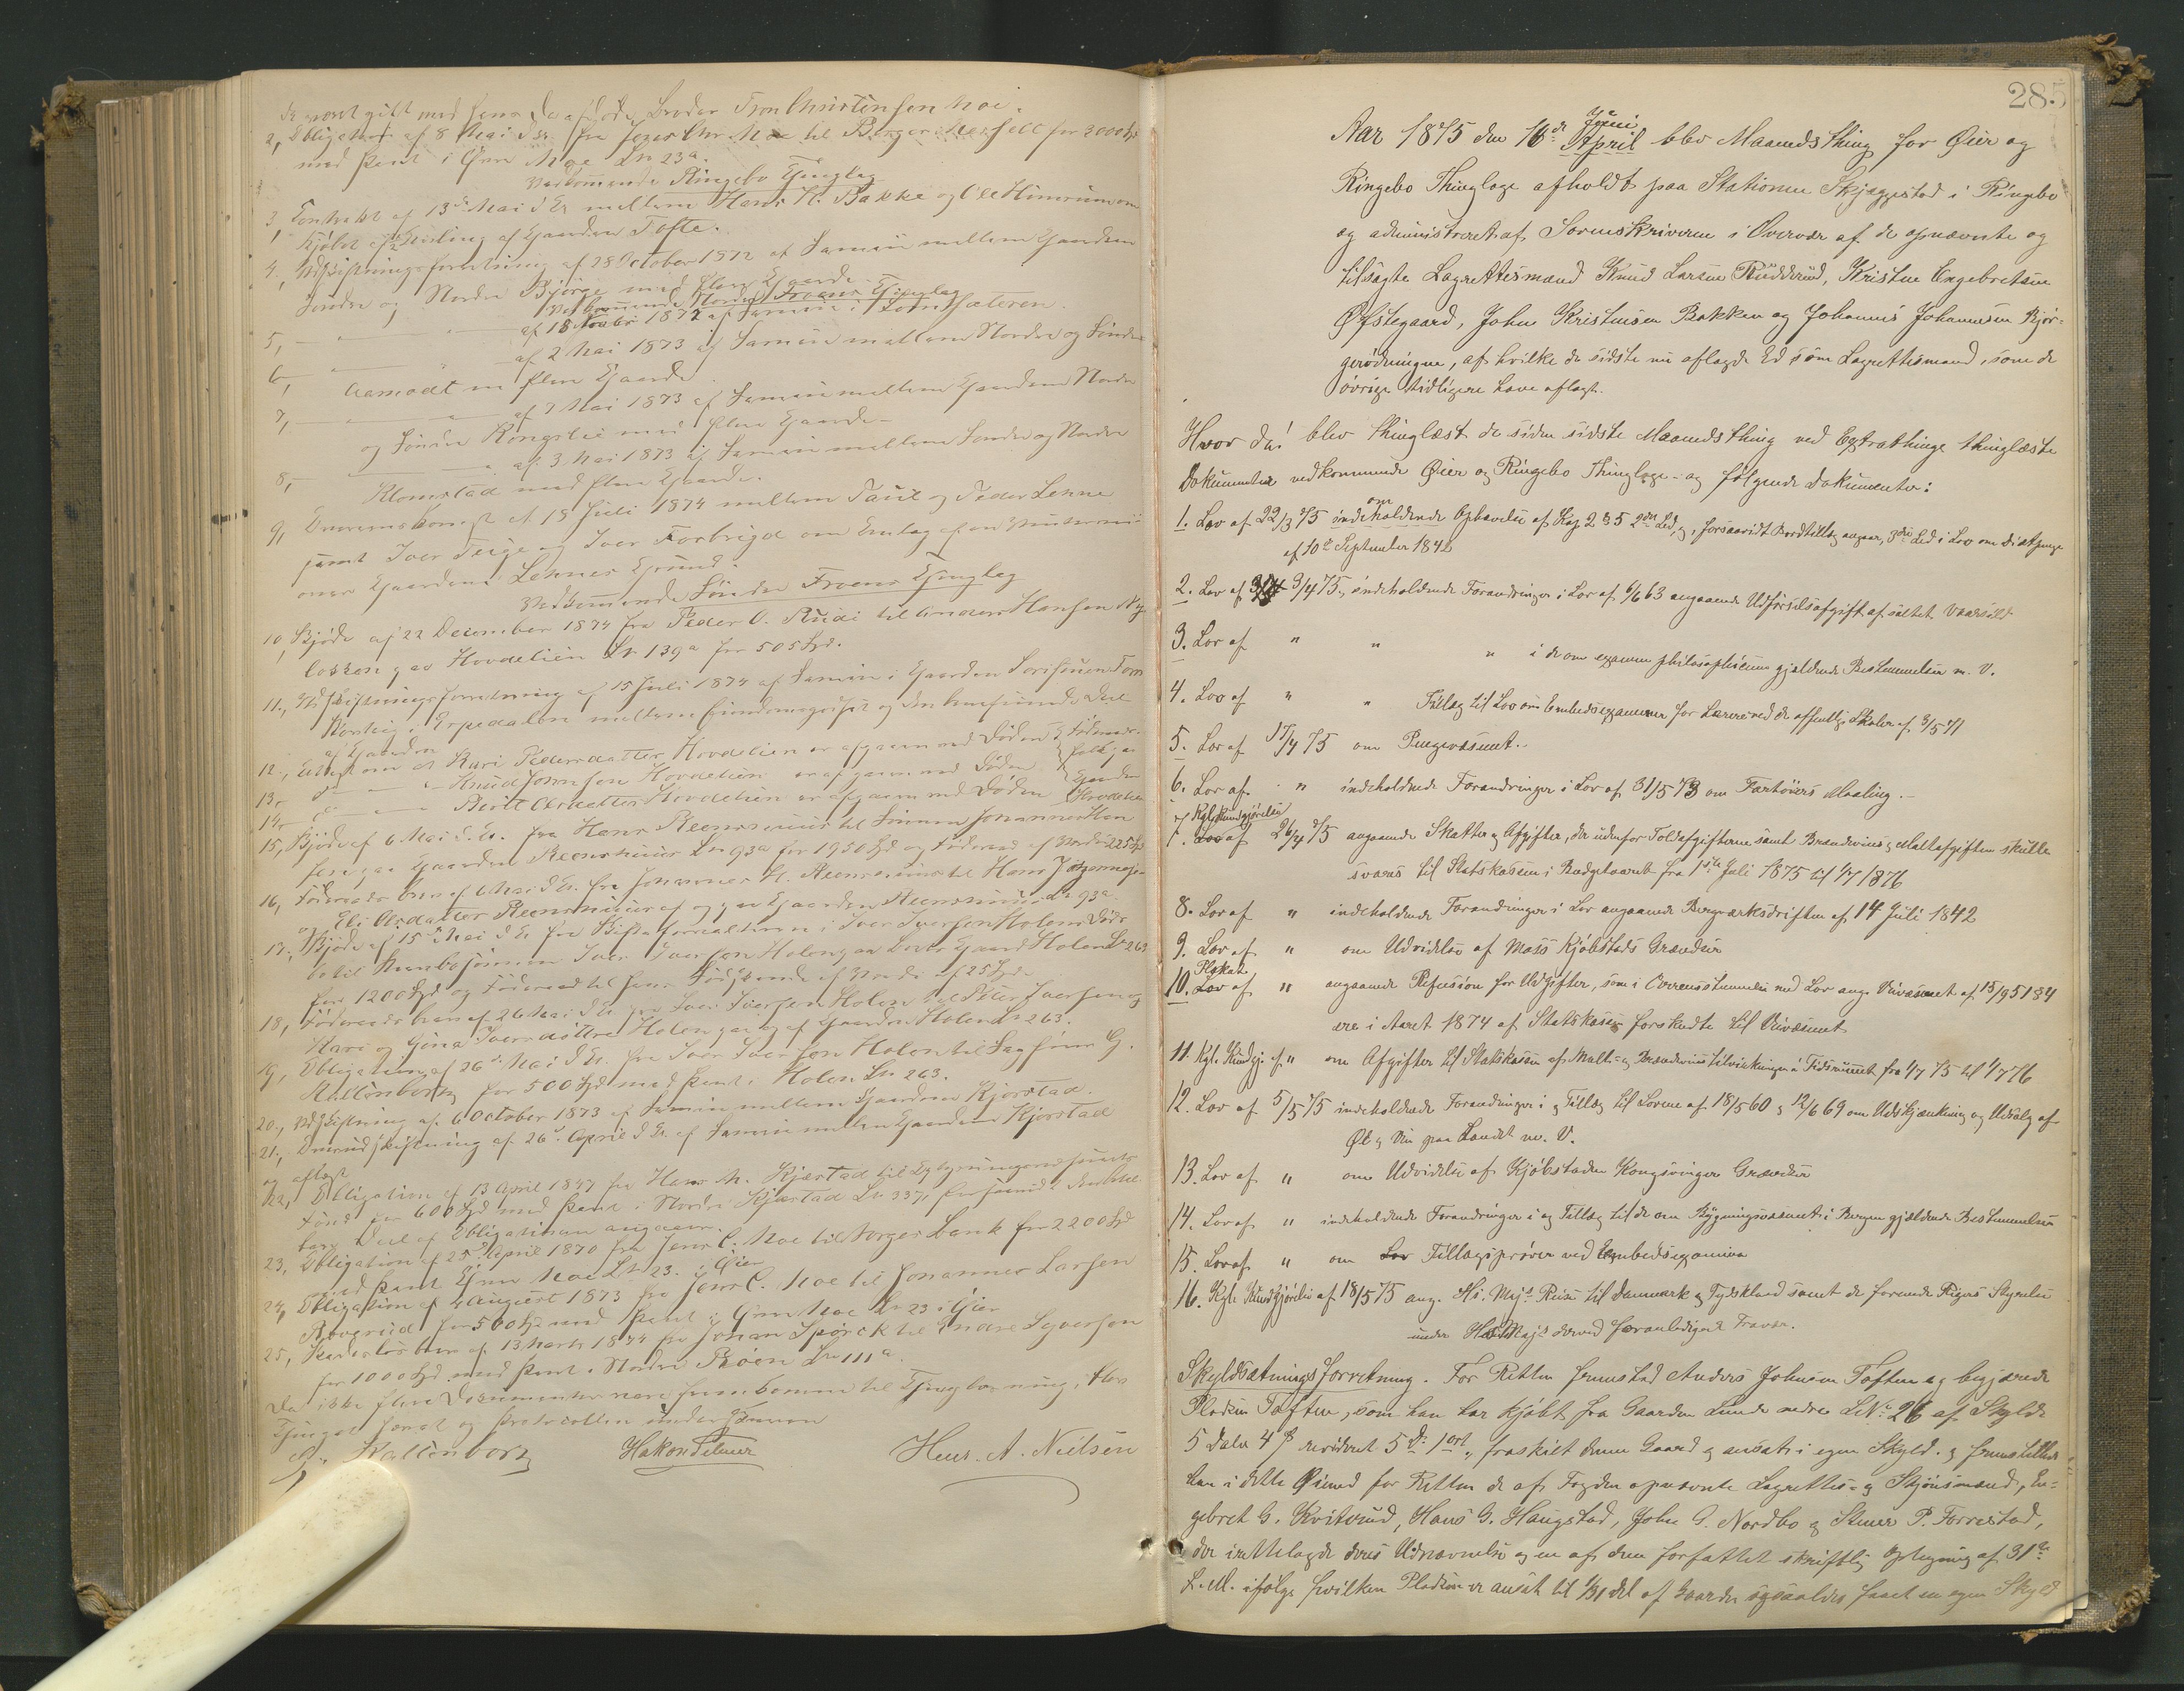 de været gift med hans da afdøde Broder Tron Christensen Moe.
2, Obligation af 8 Mai d. A. fra Jens Chr. Moe til Børger for 2000 Kr
med Pant i Ejnn Moe Ln 23a.
Vedkommende Ringebo Thinglag
3, Contrakt af 13de Mai d Ar mellem Hans H. Bakke og Ole om
Kjøbet af Deeling af Gaarden Tofte.
4, Udskiftningsforretning af 28 October 1872 af Sameie mellem Gaardene
Søndre og Nordre Bjørge med flere Gaarde
Vedkommende Nordre Froens Thinglag
5, — " — af 18 Novbr 1872 af Sameie i Sæteren.
6, — " — af 2 Mai 1873 af Sameie mellem Nordre og Søndre
Aamodt m flere Gaarde
7, — " — af 7 Mai 1873 af Sameie mellem Gaardene Nordre
og Søndre Kongslie med flere Gaarde
8, — " — af 3 Mai 1873 af Sameie mellem Søndre og Nordre
Klomstad med flere Gaarde.
9, Overenskomst af 18 Juli 1874 mellem Paul og Peder Lehne
samt Iver Teige og Iver Forbrigd om Emlag af en
over Gaardens Lehnes Grund.
Vedkommende Søndre Froens Thinglag
10, Skjøde af 22 December 1874 fra Peder O. Rudi til Anders Hansen
løkken paa Hovdelien Ln 139a for 505 Spd.
11, Udskiftningsforretning af 15 Juli 1874 af Sameie i Gaarden
i Espedalen mellem og den Deel
af Gaarden
12, Attest om at Kari Pedersdatter Hovdelien er afgaaen ved Døden
13, do — " — Knud Johnsen Hovdelien er afgaaen ved Døden
14, do — " — Berit Olsdatter Hovdelien er afgaaen ved Døden
15, Skjøde af 6 Mai d. A. fra Hans til Sønnen Johannes Han
sen paa Gaarden Ln 93a for 1950 Spd og Føderaad af Værdi 225 Spd
16, Føderaadsbrev af 6 Mai d. A. fra Johannes H. til Hans
Eli Olsdatter af og paa Gaarden Ln 93a
17, Skjøde af 15de Mai d A fra Skifteforvalteren i Iver Iversen Holens Døds
bo til Iver Iversen Holen paa Gaard Holen Ln 263
for 1200 Spd og Føderaad til hans Søskende af Værdi af 25 Spd
18, Føderaadsbrev af 26 Mai d A fra Iver Iversen Holen til Peter Iversen og
Kari og Gina Iversdøttre Holen paa og af Gaarden Holen Ln 263.
19, Obligation af 26de Mai d A. fra Iver Iversen Holen til Sagfører G.
Kaltenborn for 500 Spd med Pant i Holen Ln 263.
20, Udskiftning af 6 October 1873 af Sameie mellem Gaardene Kjorstad.
21, Omudskiftning af 26de April d A. af Sameie mellem Gaardene Kjorstad
og aflæst
22, Obligation af 13 April 1847 fra Hans M. Kjorstad til
Fond for 600 Spd med Pant i Nordre Kjorstad Ln 337, forsaavidt
Deel af Obligationen angaaer.
23, Obligation af 25de April 1870 fra Jens C. Moe til Norges Bank for 2200 Spd
med Pant i Ejnn Moe Ln 23. i Øier
24, Obligation af 4 August 1873 fra Jens C. Moe til Johannes Larsen
for 500 Spd med Pant i Ejnn Moe Ln 23 i Øier
25, af 13 Marts 1874 fra Johan Spørck til Endre Syversen
for 1000 Spd med Pant i Nordre Røen Ln 111a.
Da ikke flere Documenter vare fremkomne til Thinglæsning, blev
Thinget hævet og Protocollen underskreven
G. Kaltenborn Hakon Henr. A. Nielsen
285
Aar 1875 den 16de April Juni blev Maanedsthing for Øier og
Ringebo Thinglage afholdt paa Stationen Skjæggestad i Ringebo
og administreret af Sorenskriveren i Overvær af de opnævnte og
tilsagte Lagrettesmænd Knud Larsen Rudderud, Kristen Engebretsen
Øfstegaard, John Kristensen Bakken og Johannes Johannesen Kjør-
gerødningen, af hvilke de sidste nu aflagde Ed som Lagrettesmænd, som de
øvrige tidligere have aflagt.
Hvor da! blev thinglæst de siden sidste Maanedsthing ved Extrathinge thinglæste
Dokumenter vedkommende Øier og Ringebo Thinglage – og følgende Dokumenter:
1. Lov af 22/3 75 indeholdende om Ophævelse af Kap 2 § 5 2det Led, og, forsaavidt Bordtillæg angaar, 3die Led i Lov om Diætpenge
af 10de September 1842
2. Lov af 3/4 75, indeholdende Forandringer i Lov af 6/6 63 angaaende Udførselsafgift af saltet Vaarsild
3. Lov af " " " i de om examen philosophicum gjældende Bestemmelser m. V.
4. Lov af " " Tillæg til Lov om Embedsexamener for Lærere ved de offentlige Skoler af 3/5 71
5. Lov af 17/4 75 om Pengevæsenet.
6. Lov af " indeholdende Forandringer i Lov af 31/5 73 om Fartøiers Maaling.
7. Lov Kgl. Kundgjørelse af 26/4 75 angaaende Skatter og Afgifter, der udenfor Toldafgifterne samt Brændevins og Maltafgiften skulle
svares til Statskassen i Budgetaaret fra 1ste Juli 1875 til 1/7 1876
8. Lov af " indeholdende Forandringer i Lov angaaende Bergværksdriften af 14 Juli 1842
9. Lov af " om Udvidelse af Moss Kjøbstads Grændser
10. Lov Plakat af " angaaende Refusion for Udgifter, som i Overensstemmelse med Lov ang. Veivæsenet af 15/9 5184
ere i Aaret 1874 af Statskassen forskudte til Veivæsenet
11. Kgl. Kundgj. af " om Afgifter til Statskassen af Malt- og Brændevinstilvirkningen i Tidsrummet fra 1/7 75 til 1/7 76
12. Lov af 5/5 75 indeholdende Forandringer i og Tillæg til Lovene af 18/5 60 og 12/6 69 om Udskjænkning og Udsalg af
Øl og Vin paa Landet m. V.
13. Lov af " om Udvidelse af Kjøbstaden Kongsvinger Grændser
14. Lov af " indeholdende Forandringer i og Tillæg til de om Bygningsvæsenet i Bergen gjældende Bestemmelser
15. Lov af " om Lov Tillægsprøver ved Embedsexamina
16. Kgl. Kundgjørelse af 18/5 75 ang. Hs. Majs Reise til Danmark og Tydskland samt de forende Rigers Styrelse
under Hs Majs derved foranledigede Fravær.
Skyldsætningsforretning. For Retten fremstod Anders Johnsen Toften og begjærede
Pladsen Toften, som han har kjøbt fra Gaarden Lunde nedre LNo 26 af Skyld
5 Daler 4 β revideret 5 D. 1 ort " fraskilt denne Gaard og ansat i egen Skyld. og fremstillede
han i dette Øiemed for Retten de af Fogden opnævnte Lagrettes- og Skjønsmænd, En-
gebret G. Kvitrud, Hans G. Haugstad, John G. Nordbo og Stener P. Forrestad,
der irettelagde deres Udnævnelse og en af dem forfattet skriftlig Optegning af 31te
f. M. ifølge hvilken Pladsen er ansat til 1/31 del af Gaarden og saaledes faaet en egen Skyld